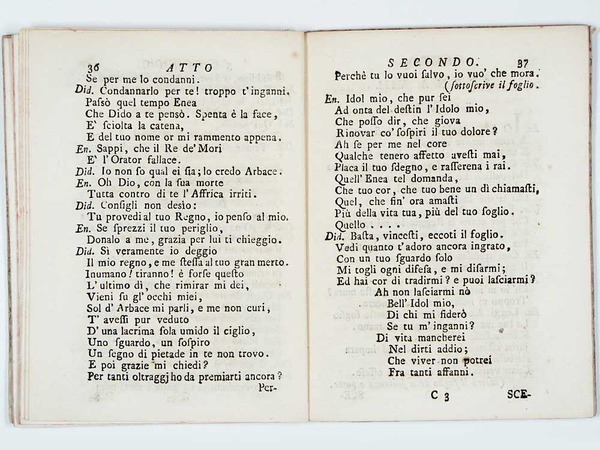 36 ATTO
Se per me lo condanni.
Did. Condannarlo per te! troppo t'inganni.
Paſsò quel tempo Enea
Che Dido a te pensò. Spenta è la face,
E' ſciolta la catena,
E del tuo nome or mi rammento appena.
En. Sappi, che il Re de' Mori
E' l'Orator fallace.
Did. Io non ſo qual ei ſia; lo credo Arbace.
En. Oh Dio, con la sua morte
Tutta contro di te l'Affrica irriti.
Did. Conſigli non deſio:
Tu provedi al tuo Regno, io penſo al mio.
En. Se ſprezzi il tuo periglio,
Donalo a me, grazia per lui ti chieggio.
Did. Sì veramente io deggio
Il mio regno, e me ſteſſa al tuo gran merto.
Inumano! tiranno! è forſe queſto
L'ultimo dì, che rimirar mi dei,
Vieni ſu gl'occhi miei,
Sol d'Arbace mi parli, e me non curi,
T' aveſſi pur veduto
D'una lacrima ſola umido il ciglio,
Uno ſguardo, un ſoſpiro
Un ſegno di pietade in te non trovo.
E poi grazie mi chiedi?
Per tanti oltraggj ho da premiarti ancora?
Per-
SECONDO. 37
Perchè tu lo vuoi ſalvo, io vuo' che mora.
(ſottoſcrive il foglio.
En. Idol mio, che pur ſei
Ad onta del deſtin l'Idolo mio,
Che poſſo dir, che giova
Rinovar co' ſoſpiri il tuo dolore?
Ah ſe per me nel core
Qualche tenero affetto aveſti mai,
Placa il tuo ſdegno, e raſſerena i rai.
Quell' Enea tel domanda,
Che tuo cor, che tuo bene un dì chiamaſti,
Quel, che fin' ora amaſti
Più della vita tua, più del tuo ſoglio.
Quello . . . .
Did. Baſta, vinceſti, eccoti il foglio.
Vedi quanto t'adoro ancora ingrato,
Con un tuo ſguardo ſolo
Mi togli ogni difeſa, e mi diſarmi;
Ed hai cor di tradirmi? e puoi laſciarmi?
Ah non laſciarmi nò
Bell' Idol mio,
Di chi mi fiderò
Se tu m'inganni?
Di vita mancherei
Nel dirti addio;
Che viver non potrei
Fra tanti affanni.
C 3 SCE-